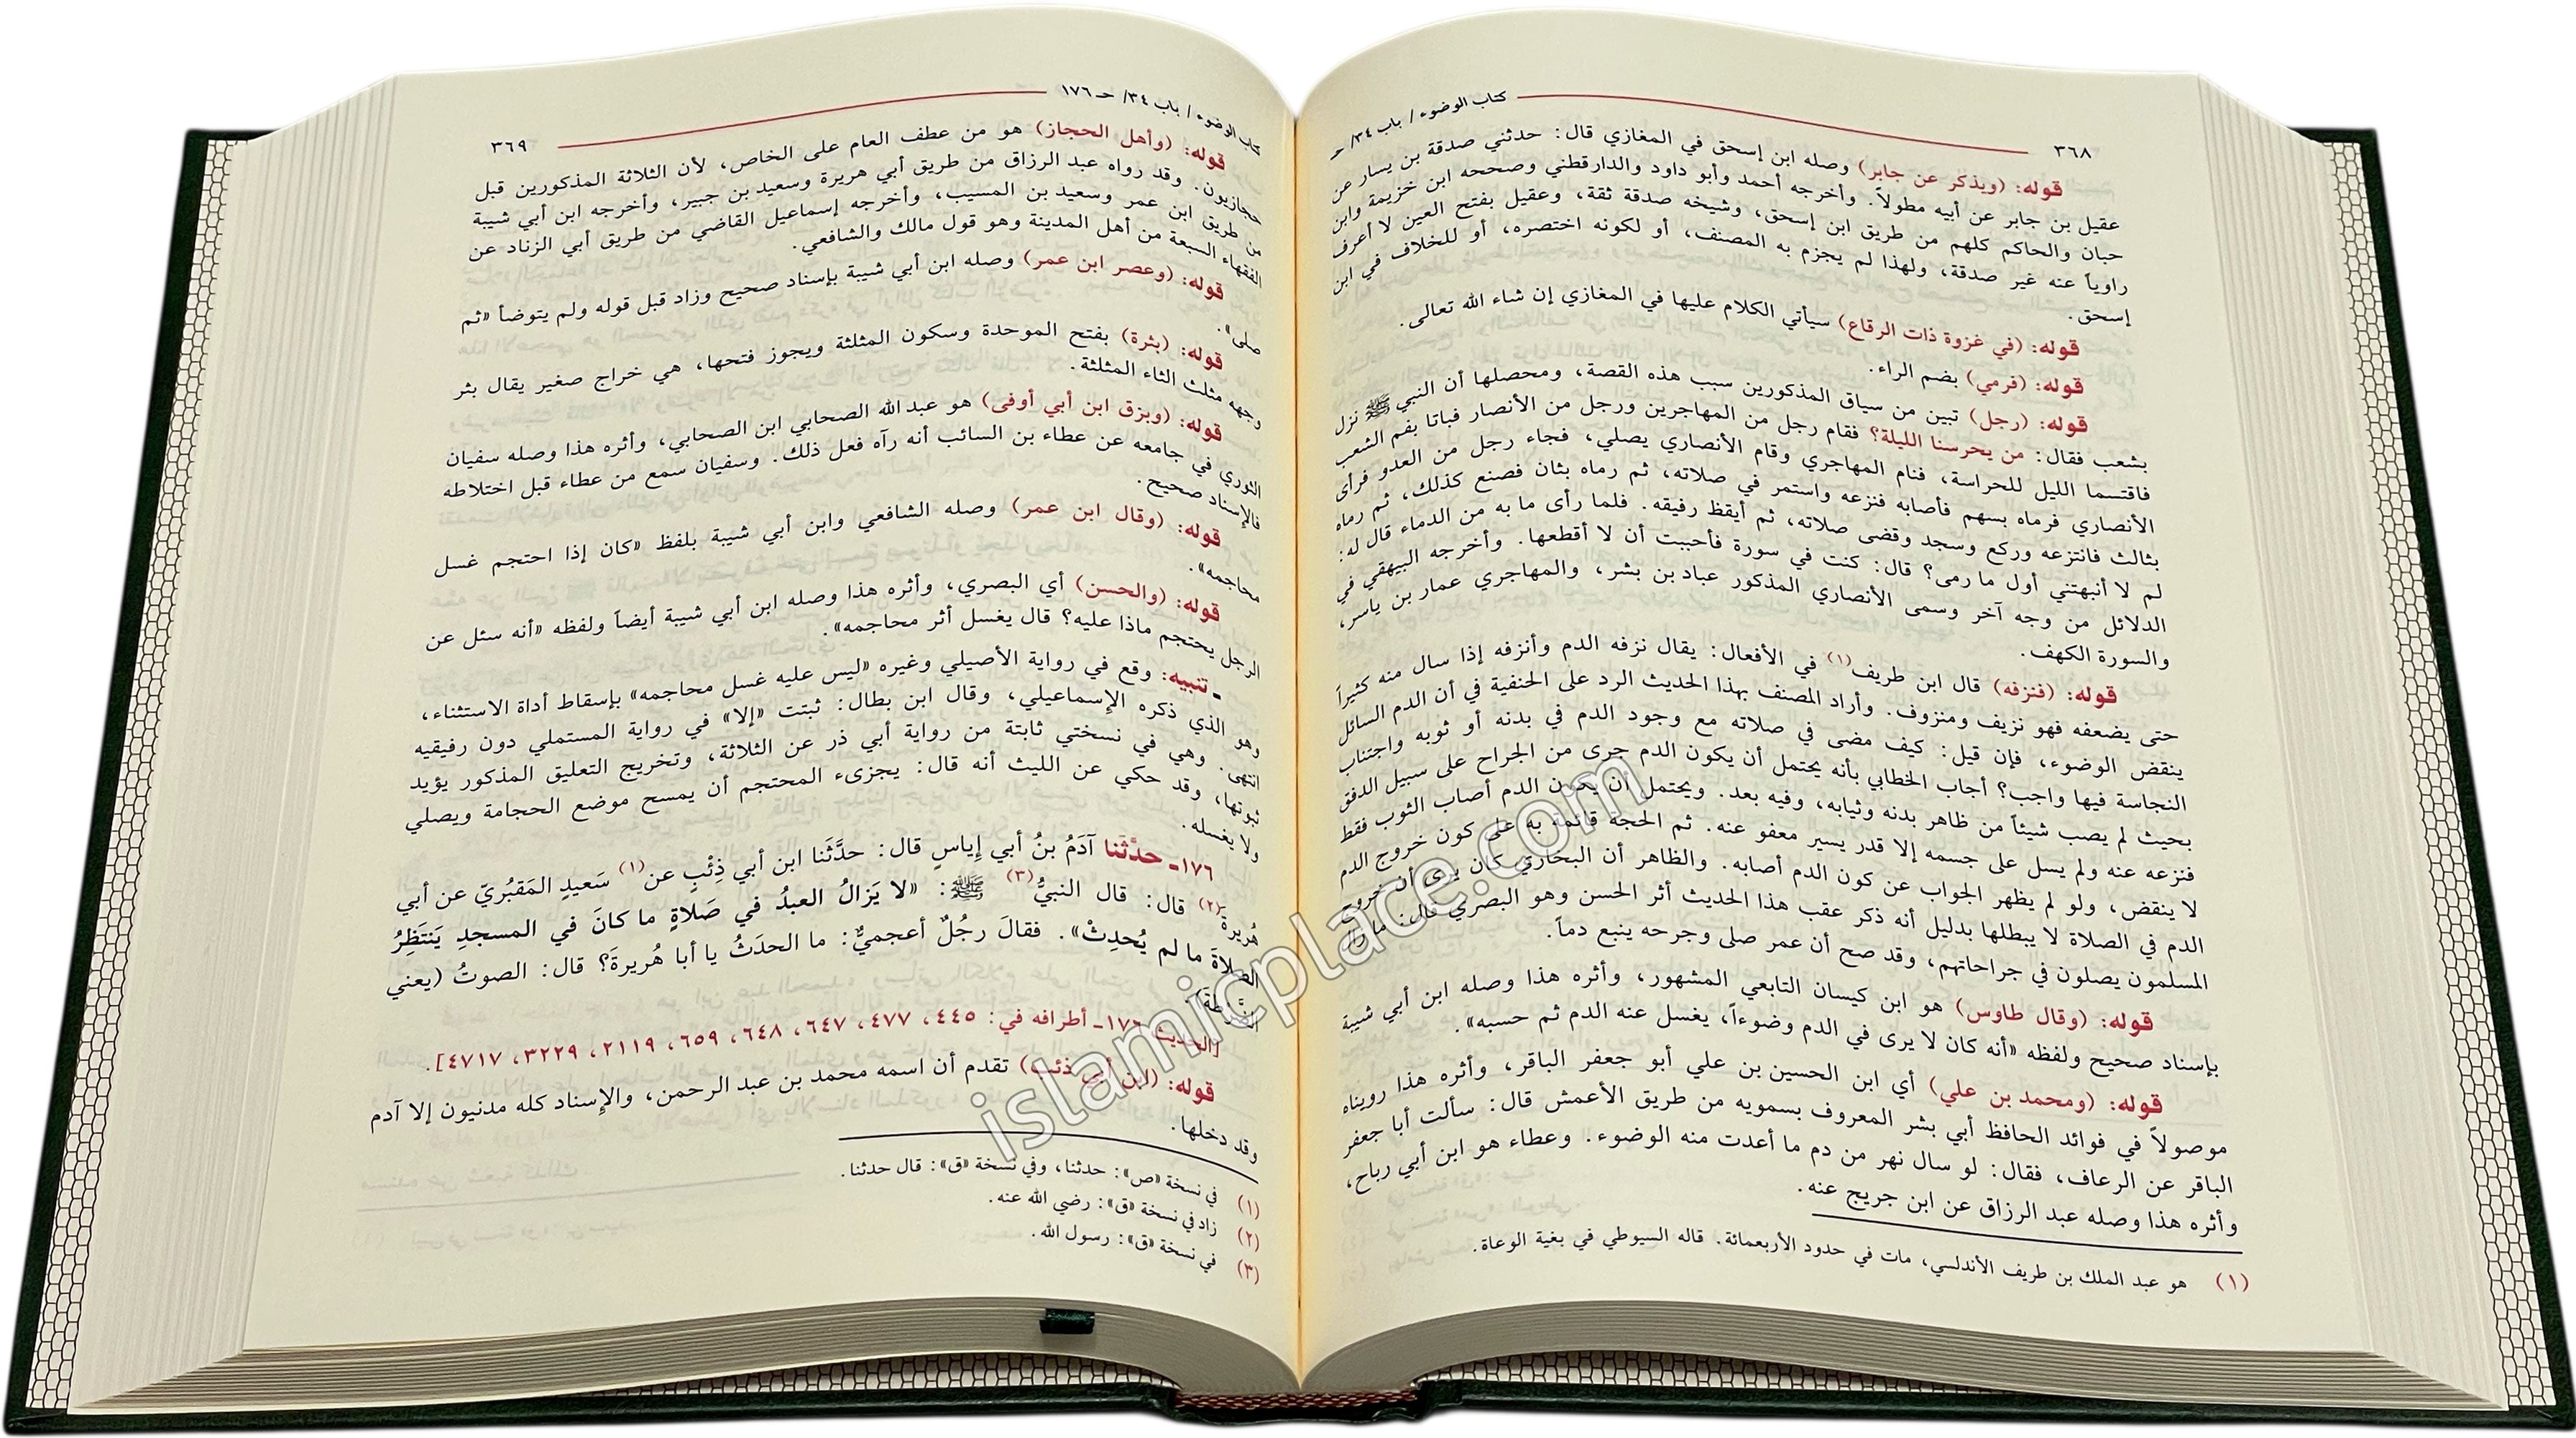 كتاب الوضوء / باب ٣٤/ حـ
٣٦٨
قوله: (ويذكر عن جابر) وصله ابن إسحق في المغازي قال: حدثني صدقة بن يسار عن
عقيل بن جابر عن أبيه مطولاً. وأخرجه أحمد وأبو داود والدارقطني وصححه ابن خزيمة وابن
حبان والحاكم كلهم من طريق ابن إسحق، وشيخه صدقة ثقة، وعقيل بفتح العين لا أعرف
راوياً عنه غير صدقة، ولهذا لم يجزم به المصنف، أو لكونه اختصره، أو للخلاف في ابن
إسحق.
قوله: (في غزوة ذات الرقاع) سيأتي الكلام عليها في المغازي إن شاء الله تعالى.
قوله: (فرمي) بضم الراء.
قوله: (رجل) تبين من سياق المذكورين سبب هذه القصة، ومحصلها أن النبي ﷺ نزل
بشعب فقال: من يحرسنا الليلة؟ فقام رجل من المهاجرين ورجل من الأنصار فباتا بفم الشعب
فاقتسما الليل للحراسة، فنام المهاجري وقام الأنصاري يصلي، فجاء رجل من العدو فرأى
الأنصاري فرماه بسهم فأصابه فنزعه واستمر في صلاته، ثم رماه بثان فصنع كذلك، ثم رماه
بثالث فانتزعه وركع وسجد وقضى صلاته، ثم أيقظ رفيقه. فلما رأى ما به من الدماء قال له:
لم لا أنبهتني أول ما رمى؟ قال: كنت في سورة فأحببت أن لا أقطعها. وأخرجه البيهقي في
الدلائل من وجه آخر وسمى الأنصاري المذكور عباد بن بشر، والمهاجري عمار بن ياسر،
والسورة الكهف.
قوله: (فنزفه) قال ابن طريف(١) في الأفعال: يقال نزفه الدم وأنزفه إذا سال منه كثيراً
حتى يضعفه فهو نزيف ومنزوف. وأراد المصنف بهذا الحديث الرد على الحنفية في أن الدم السائل
ينقض الوضوء، فإن قيل: كيف مضى في صلاته مع وجود الدم في بدنه أو ثوبه واجتناب
النجاسة فيها واجب؟ أجاب الخطابي بأنه يحتمل أن يكون الدم جرى من الجراح على سبيل الدفق
بحيث لم يصب شيئاً من ظاهر بدنه وثيابه، وفيه بعد. ويحتمل أن يكون الدم أصاب الثوب فقط
فنزعه عنه ولم يسل على جسمه إلا قدر يسير معفو عنه. ثم الحجة قائمة به على كون خروج الدم
لا ينقض، ولو لم يظهر الجواب عن كون الدم أصابه. والظاهر أن البخاري كان يرى أن خروج
الدم في الصلاة لا يبطلها بدليل أنه ذكر عقب هذا الحديث أثر الحسن وهو البصري قال: ما زال
المسلمون يصلون في جراحاتهم، وقد صح أن عمر صلى وجرحه ينبع دماً.
قوله: (وقال طاوس) هو ابن كيسان التابعي المشهور، وأثره هذا وصله ابن أبي شيبة
بإسناد صحيح ولفظه «أنه كان لا يرى في الدم وضوءاً، يغسل عنه الدم ثم حسبه».
قوله: (ومحمد بن علي) أي ابن الحسين بن علي أبو جعفر الباقر، وأثره هذا رويناه
موصولاً في فوائد الحافظ أبي بشر المعروف بسمويه من طريق الأعمش قال: سألت أبا جعفر
الباقر عن الرعاف، فقال: لو سال نهر من دم ما أعدت منه الوضوء. وعطاء هو ابن أبي رباح،
وأثره هذا وصله عبد الرزاق عن ابن جريج عنه.
(١) هو عبد الملك بن طريف الأندلسي، مات في حدود الأربعمائة. قاله السيوطي في بغية الوعاة.
كتاب الوضوء / باب ٣٤/ حـ ١٧٦
٣٦٩
قوله: (وأهل الحجاز) هو من عطف العام على الخاص، لأن الثلاثة المذكورين قبل
حجازيون. وقد رواه عبد الرزاق من طريق أبي هريرة وسعيد بن جبير، وأخرجه ابن أبي شيبة
من طريق ابن عمر وسعيد بن المسيب، وأخرجه إسماعيل القاضي من طريق أبي الزناد عن
الفقهاء السبعة من أهل المدينة وهو قول مالك والشافعي.
قوله: (وعصر ابن عمر) وصله ابن أبي شيبة بإسناد صحيح وزاد قبل قوله ولم يتوضأ «ثم
صلى».
قوله: (بثرة) بفتح الموحدة وسكون المثلثة ويجوز فتحها، هي خراج صغير يقال بثر
وجهه مثلث الثاء المثلثة.
قوله: (وبزق ابن أبي أوفى) هو عبد الله الصحابي ابن الصحابي، وأثره هذا وصله سفيان
الثوري في جامعه عن عطاء بن السائب أنه رآه فعل ذلك. وسفيان سمع من عطاء قبل اختلاطه
فالإسناد صحيح.
قوله: (وقال ابن عمر) وصله الشافعي وابن أبي شيبة بلفظ «كان إذا احتجم غسل
محاجمه».
قوله: (والحسن) أي البصري، وأثره هذا وصله ابن أبي شيبة أيضاً ولفظه «أنه سئل عن
الرجل يحتجم ماذا عليه؟ قال يغسل أثر محاجمه».
ـ تنبيه: وقع في رواية الأصيلي وغيره «ليس عليه غسل محاجمه» بإسقاط أداة الاستثناء،
وهو الذي ذكره الإسماعيلي، وقال ابن بطال: ثبتت «إلا» في رواية المستملي دون رفيقيه
انتهى. وهي في نسختي ثابتة من رواية أبي ذر عن الثلاثة، وتخريج التعليق المذكور يؤيد
ثبوتها، وقد حكي عن الليث أنه قال: يجزىء المحتجم أن يمسح موضع الحجامة ويصلي
ولا يغسله.
١٧٦ـ حدَّثنا آدَمُ بنُ أبي إِياسٍ قال: حدَّثَنا ابن أبي ذِئْبٍ عن(١) سَعيدٍ المَقبُريّ عن أبي
هُريرةَ(٢) قال: قال النبيُّ(٣) ﷺ: «لا يَزالُ العبدُ في صَلاةٍ ما كانَ في المسجدِ يَنتَظِرُ
الصلاةَ ما لم يُحدِثْ». فقالَ رجُلٌ أعجميٌّ: ما الحدَثُ يا أبا هُريرةَ؟ قال: الصوتُ (يعني
الضَّرطة).
[الحديث ١٧٦ـ أطرافه في: ٤٤٥، ٤٧٧، ٦٤٧، ٦٤٨، ٦٥٩، ٢١١٩، ٣٢٢٩، ٤٧١٧].
قوله: (ابن أبي ذئب) تقدم أن اسمه محمد بن عبد الرحمن، والإسناد كله مدنيون إلا آدم
وقد دخلها.
(١) في نسخة «ص»: حدثنا، وفي نسخة «ق»: قال حدثنا.
(٢) زاد في نسخة «ق»: رضي الله عنه.
(٣) في نسخة «ق»: رسول الله.
islamicplace.com